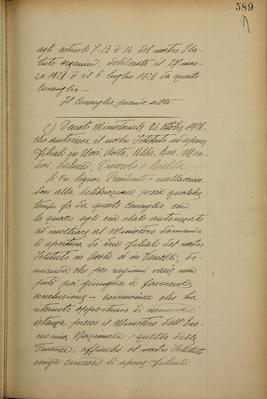 589
agli articoli 7. 13 e 14 del nostro Sta-
tuto organico, deliberate il 27 mar-
zo 1928 e il 6 luglio 1928 da questo
Consiglio -
Il Consiglio prende atto
c) Decreto Ministeriale 26 ottobre 1928,
che autorizza il nostro Istituto ad aprire
filiali in Novi, Aosta, Alba, Bra, Mon-
dovì, Saluzzo, Pinerolo e Biella,
Il On. Signor Presidente - riallaccian-
dosi alla deliberazione presa qualche
tempo fa da questo Consiglio, con
la quale egli era stato autorizzato
ad inoltrare al Ministero domanda
di apertura di due filiali del nostro
Istituto in Aosta ed in Vercelli, do-
manda che per ragioni varie non
potè poi giungere a favorevole
conclusione - comunica che ha
ritenuto opportuno di rinnovare
istanza presso il Ministero dell'Eco-
nomia Nazionale e quello delle
Finanze, affinchè al nostro Istituto
venga concesso di aprire filiali